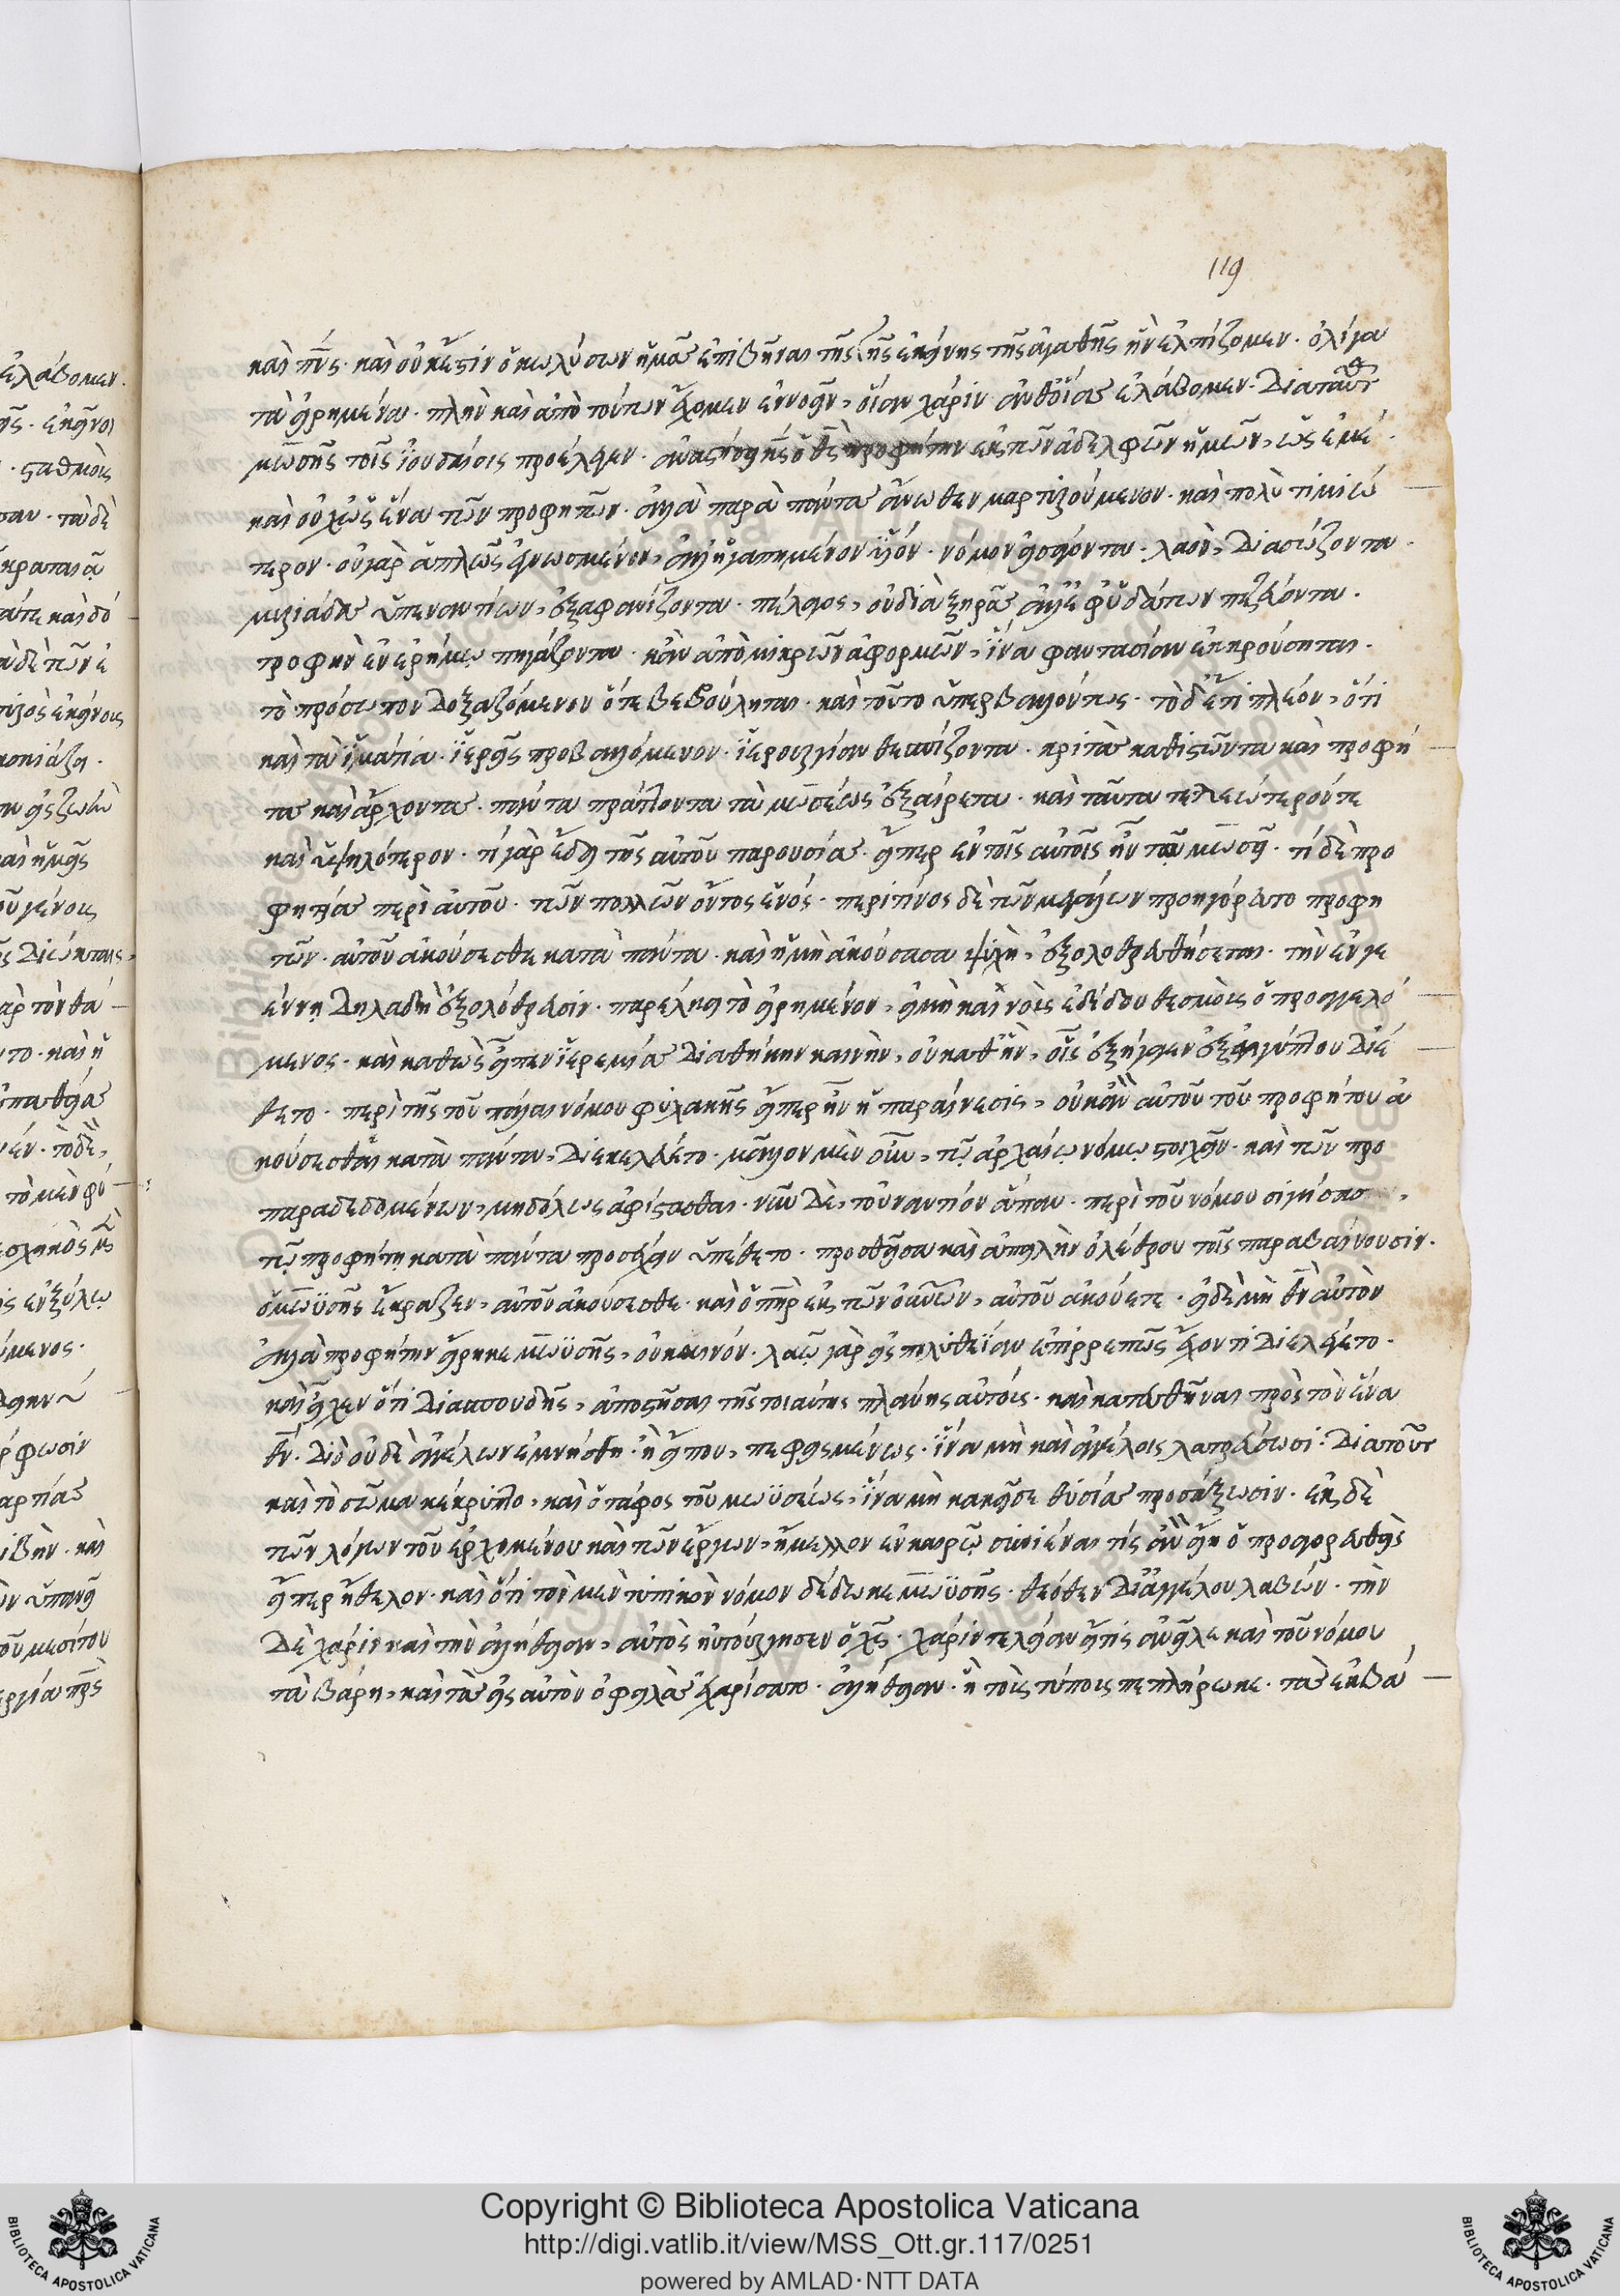 119
καὶ π̅ν̅ς· καὶ οὐκ ἔστιν ὁ κωλύσων ἡμᾶς ἐπιβῆναι τῆς γῆς ἐκείνης τῆς ἀγαθῆς ἣν ἐλπίζομεν· ὀλίγα
τὰ εἰρημένα· πλὴν καὶ ἀπὸ τούτων ἔχομεν ἐννοεῖν, οἵαν χάριν ἀνθ' οἵας ἐλάβομεν· Διὰ ταῦτ
μωσῆς τοῖς ἰουδαίοις προέλεγεν· ἀναστήσει κ̅ς̅ ὁ θ̅ς̅ προφήτην ἐκ τῶν ἀδελφῶν ἡμῶν, ὡς ἐμέ·
καὶ οὐχ ὡς ἕνα τῶν προφητῶν· ἀλλὰ παρὰ πάντας ἄνωθεν μαρτυρούμενον· καὶ πολὺ τιμιώ
τερον· οὐ γὰρ ἁπλῶς ἐγνωσμένον, ἀλλ' ἠγαπημένον υἱόν· νόμον εἰσφέροντα· λαὸν, Διασώζοντα·
μυριάδας ὑπεναντίων, ἐξαφανίζοντα· πέλαγος, οὐ διὰ ξηρᾶς ἀλλ' ἐφ' ὑδάτων πεζεύοντα·
τροφὴν ἐν ἐρήμω πηγάζοντα· κἂν ἀπὸ μικρῶν ἀφορμῶν, ἵνα φαντασίαν ἐκκρούσηται·
τὸ πρόσωπον Δοξαζόμενον ὅτε βεβούληται· καὶ τοῦτο ὑπερβαλλόντως· τὸ δ' ἔτι πλέον, ὅτι
καὶ τὰ ἱμάτια· ἱερεῖς προβαλλόμενον· ἱερουργίαν θεσπίζοντα· κριτὰς καθιστῶντα καὶ προφή
τας καὶ ἄρχοντας· πάντα πράττοντα τὰ μωσέως ἐξαίρετα· καὶ ταῦτα τελεώτερόν τε
καὶ ὑψηλότερον· τί γὰρ ἔδει τῆς αὐτοῦ παρουσίας· εἴπερ ἐν τοῖς αὐτοῖς ἦν τῷ μωσῇ· τί δὲ προ
φητείας περὶ αὐτοῦ· τῶν πολλῶν ὄντος ἑνός· περὶ τίνος δὲ τῶν μεγάλων προηγόρευτο προφη
τῶν· αὐτοῦ ἀκούσεσθε κατὰ πάντα· καὶ ἡ μὴ ἀκούσασα ψυχὴ, ἐξολοθρευθήσεται· τὴν ἐν γε
έννῃ Δηλαδὴ ἐξολόθρευσιν· παρέλκει τὸ εἰρημένον, εἰ μὴ καινοὺς ἐδίδου θεσμοὺς ὁ προαγγελό
μενος· καὶ καθὼς εἶπεν ἱερεμίας Διαθήκην καινὴν, οὐ καθ' ἣν, οἷς ἐξήγαγεν ἐξ αἰγύπτου Διέ
θετο· περὶ τῆς τοῦ πάλαι νόμου φυλακῆς εἴπερ ἦν ἡ παραίνεσις, οὐκ ἂν αὐτοῦ τοῦ προφήτου ἀ
κούσεσθαι κατὰ πάντα, Διεκελεύετο· μᾶλλον μὲν οὖν, τῷ ἀρχαίῳ νόμῳ στοιχεῖν· καὶ τῶν προ
παραδεδομένων, μηδόλως ἀφίστασθαι· νῦν Δὲ, τοὐναντίον ἅπαν· περὶ τοῦ νόμου σιγήσας
τῷ προφήτῃ κατὰ πάντα προσέχειν ὑπέθετο· προσθεὶς καὶ ἀπειλὴν ὀλέθρου τοῖς παραβαίνουσιν·
ὁ μωϋσῆς ἔκραζεν, αὐτοῦ ἀκούσεσθε· καὶ ὁ π̅η̅ρ ἐκ τῶν ο̅υ̅ν̅ῶν, αὐτοῦ ἀκούετε· εἰ δὲ μὴ θ̅ν̅ αὐτὸν
ἀλλὰ προφήτην εἴρηκε μωϋσῆς, οὐ καινόν· λαῷ γὰρ εἰς πολυθεΐαν ἐπιρρεπῶς ἔχοντι Διελέγετο·
καὶ εἶχεν ὅτι Διὰ σπουδῆς, ἀποστῆσαι τῆς τοιαύτης πλάνης αὐτούς· καὶ καταχθῆναι πρὸς τὸν ἕνα
θ̅ν̅· Διὸ οὐδὲ ἀγγέλων ἐμνήσθη· ἢ εἴπου, πεφεισμένως· ἵνα μὴ καὶ ἀγγέλοις λατρεύσωσι· Διὰ τοῦτ
καὶ τὸ σῶμα κέκρυπτο, καὶ ὁ τάφος τοῦ μωϋσέως, ἵνα μὴ κἀκεῖσε θυσίας προσάξωσιν· ἐκ δὲ
τῶν λόγων τοῦ ἐρχομένου καὶ τῶν ἔργων, ἤμελλον ἐν καιρῷ συνιέναι τίς ἂν εἴη ὁ προαγορευθεὶς
εἴπερ ἤθελον· καὶ ὅτι τὸν μὲν τυπικὸν νόμον δέδωκε μωϋσῆς· θεόθεν Δι' ἀγγέλου λαβών· τὴν
Δὲ χάριν καὶ τὴν ἀλήθειαν, αὐτὸς ηὐτούργησεν ὁ χ̅ς̅· χάριν τελείαν ἥτις ἀνεῖλε καὶ τοῦ νόμου
τὰ βάρη, καὶ τὰς εἰς αὐτὸν ὀφειλὰς ἐχαρίσατο· ἀλήθειαν· ἢ τοὺς τύπους πεπλήρωκε· τὰς ἐκβά
Copyright © Biblioteca Apostolica Vaticana
http://digi.vatlib.it/view/MSS_Ott.gr.117/0251
powered by AMLAD·NTT DATA